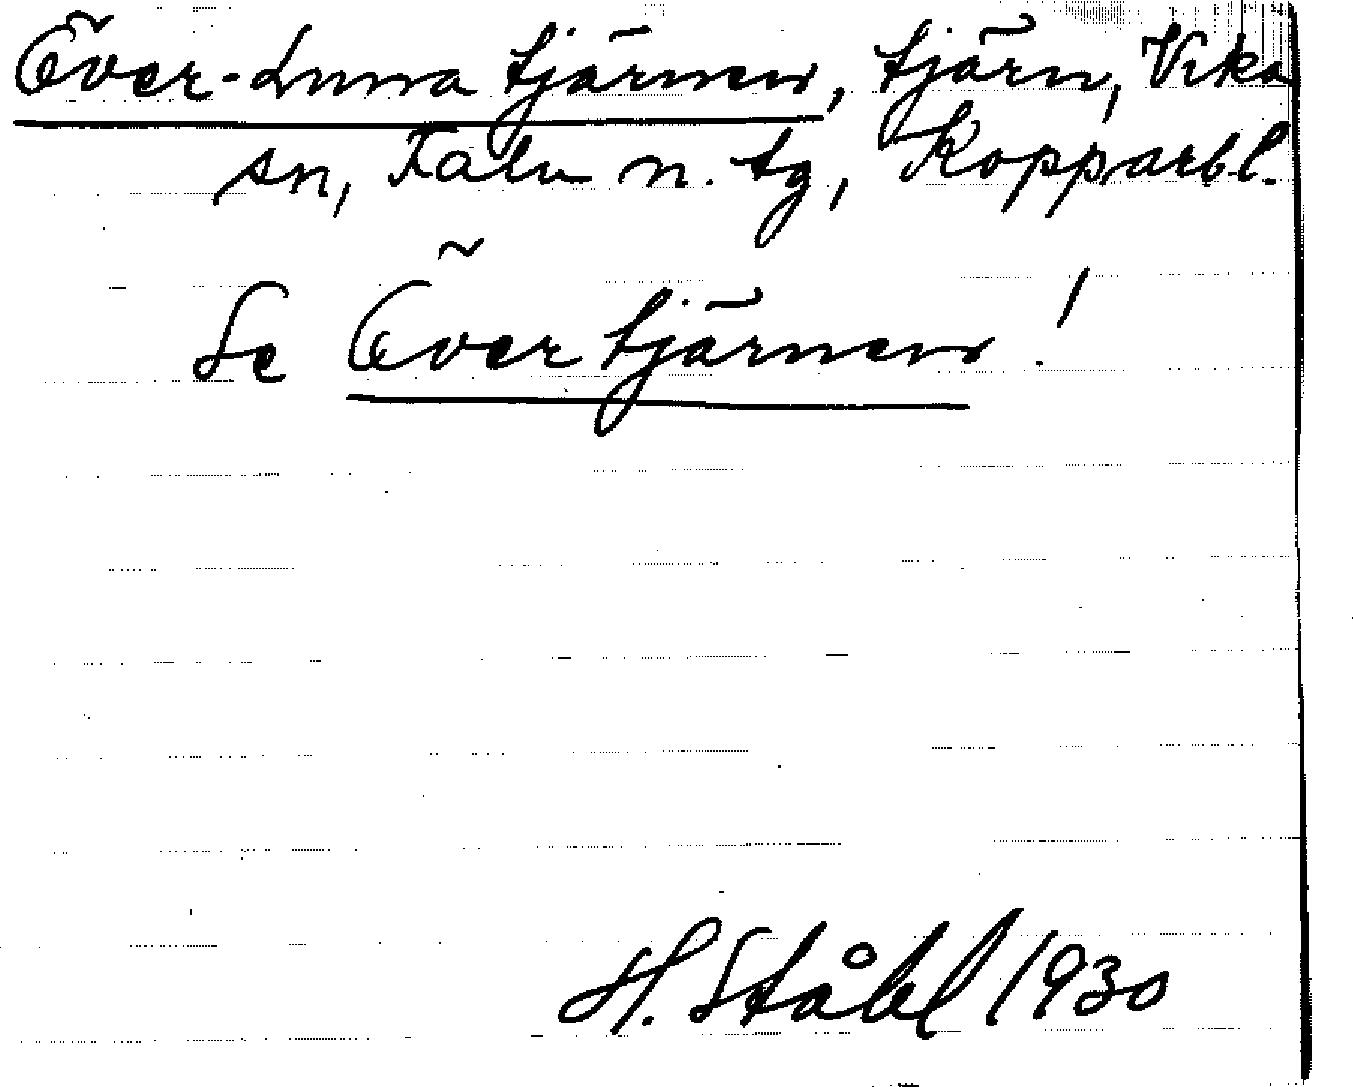 Över- tjärnen, tjärn, Vika
sn, Falu n. tg, Kopparb.l.
Se Övertjärnen!
H. Ståhl 1930